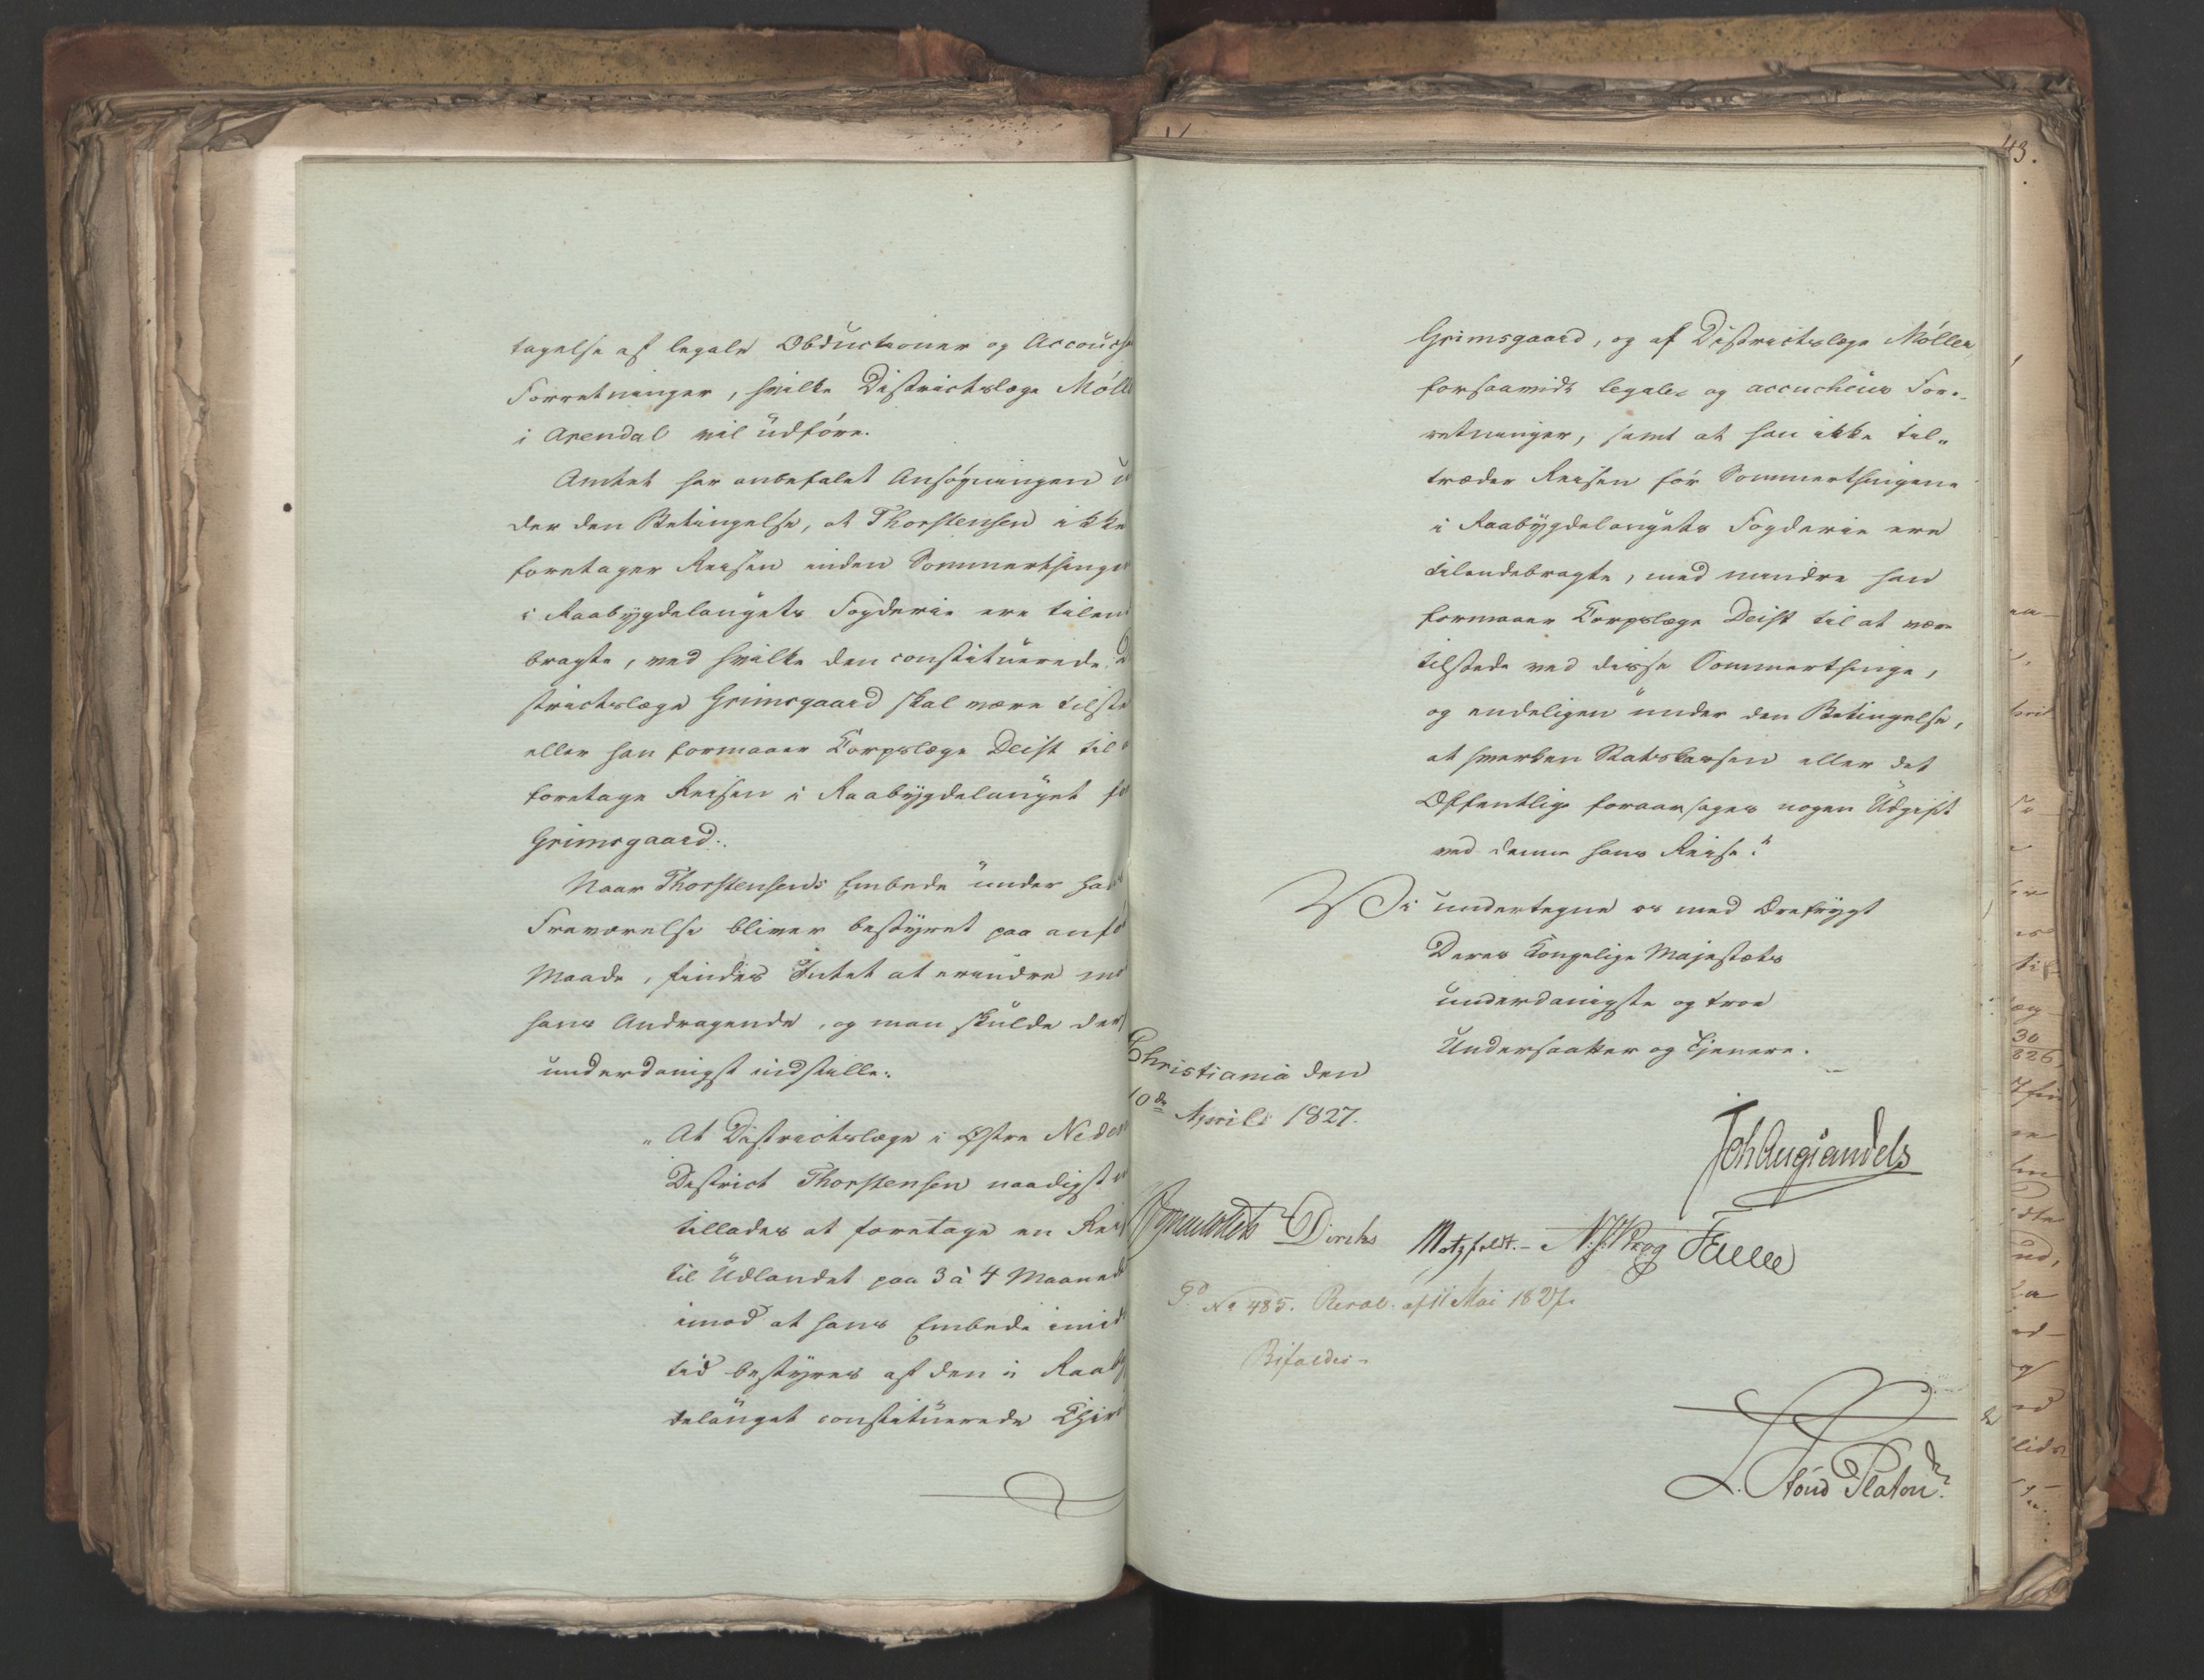 tagelse af legale Obductioner og Accouche
Forretninger, hvilke Districtslæge Mølle
i Arendal vil üdföre.
Amtet har anbefalet Ansögningen ü
der den Betingelse, at Thorstensen ikke
foretager Reisen inden Sommerthinge
i Raabygdelaugets Fogderie ere tilen
bragte, ved hvilke den constituerede D
strictslæge Grimsgaard skal være tilste
eller han formaaer Corpslæge Deist til
foretage Reisen i Raabygdelauget fo
Grimsgaard.
Naar Thorstensens Embede under ha
Fraværelse bliver bestyret paa anfö
Maade, findes Intet at erindre mo
hans Andragende, og man skulde der
underdanigst indstille:
"At Districtslæge i Østre Nede
District Thorstensen naadigst
tillades at foretage en Rei
til Udlandet paa 3 à 4 Maaned
imod at hans Embede imid
tid bestyres af den i Raaby
delauget constituerede Chir
43.
Grimsgaard, og af Districtslæge Möller,
forsaavidt legale= og accucheus For=
retninger, samt at han ikke til=
træder Reisen för Sommerthingene
i Raabygdelaugets Fogderie ere
tilendebragte, med mindre han
formaaer Corpslæge Deist til at være
tilstede ved disse Sommerthinge,
og endeligen under den Betingelse,
at hverken Statskassen eller det
Offentlige foraarsages nogen Udgift
ved denne hans Reise."
Vi undertegne os med Ærefrygt
Deres Kongelige Majestæts
underdanigste og troe
Undersaatter og Tjenere.
Christiania den
10de April 1827.
Joh Aug Sandels
Diriks Motzfeldt. Krog Fasting
No 485. Resol. af 11 Mai 1827.
Bifaldes